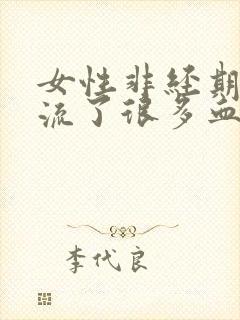 女性非经期
流了很多血
李代良